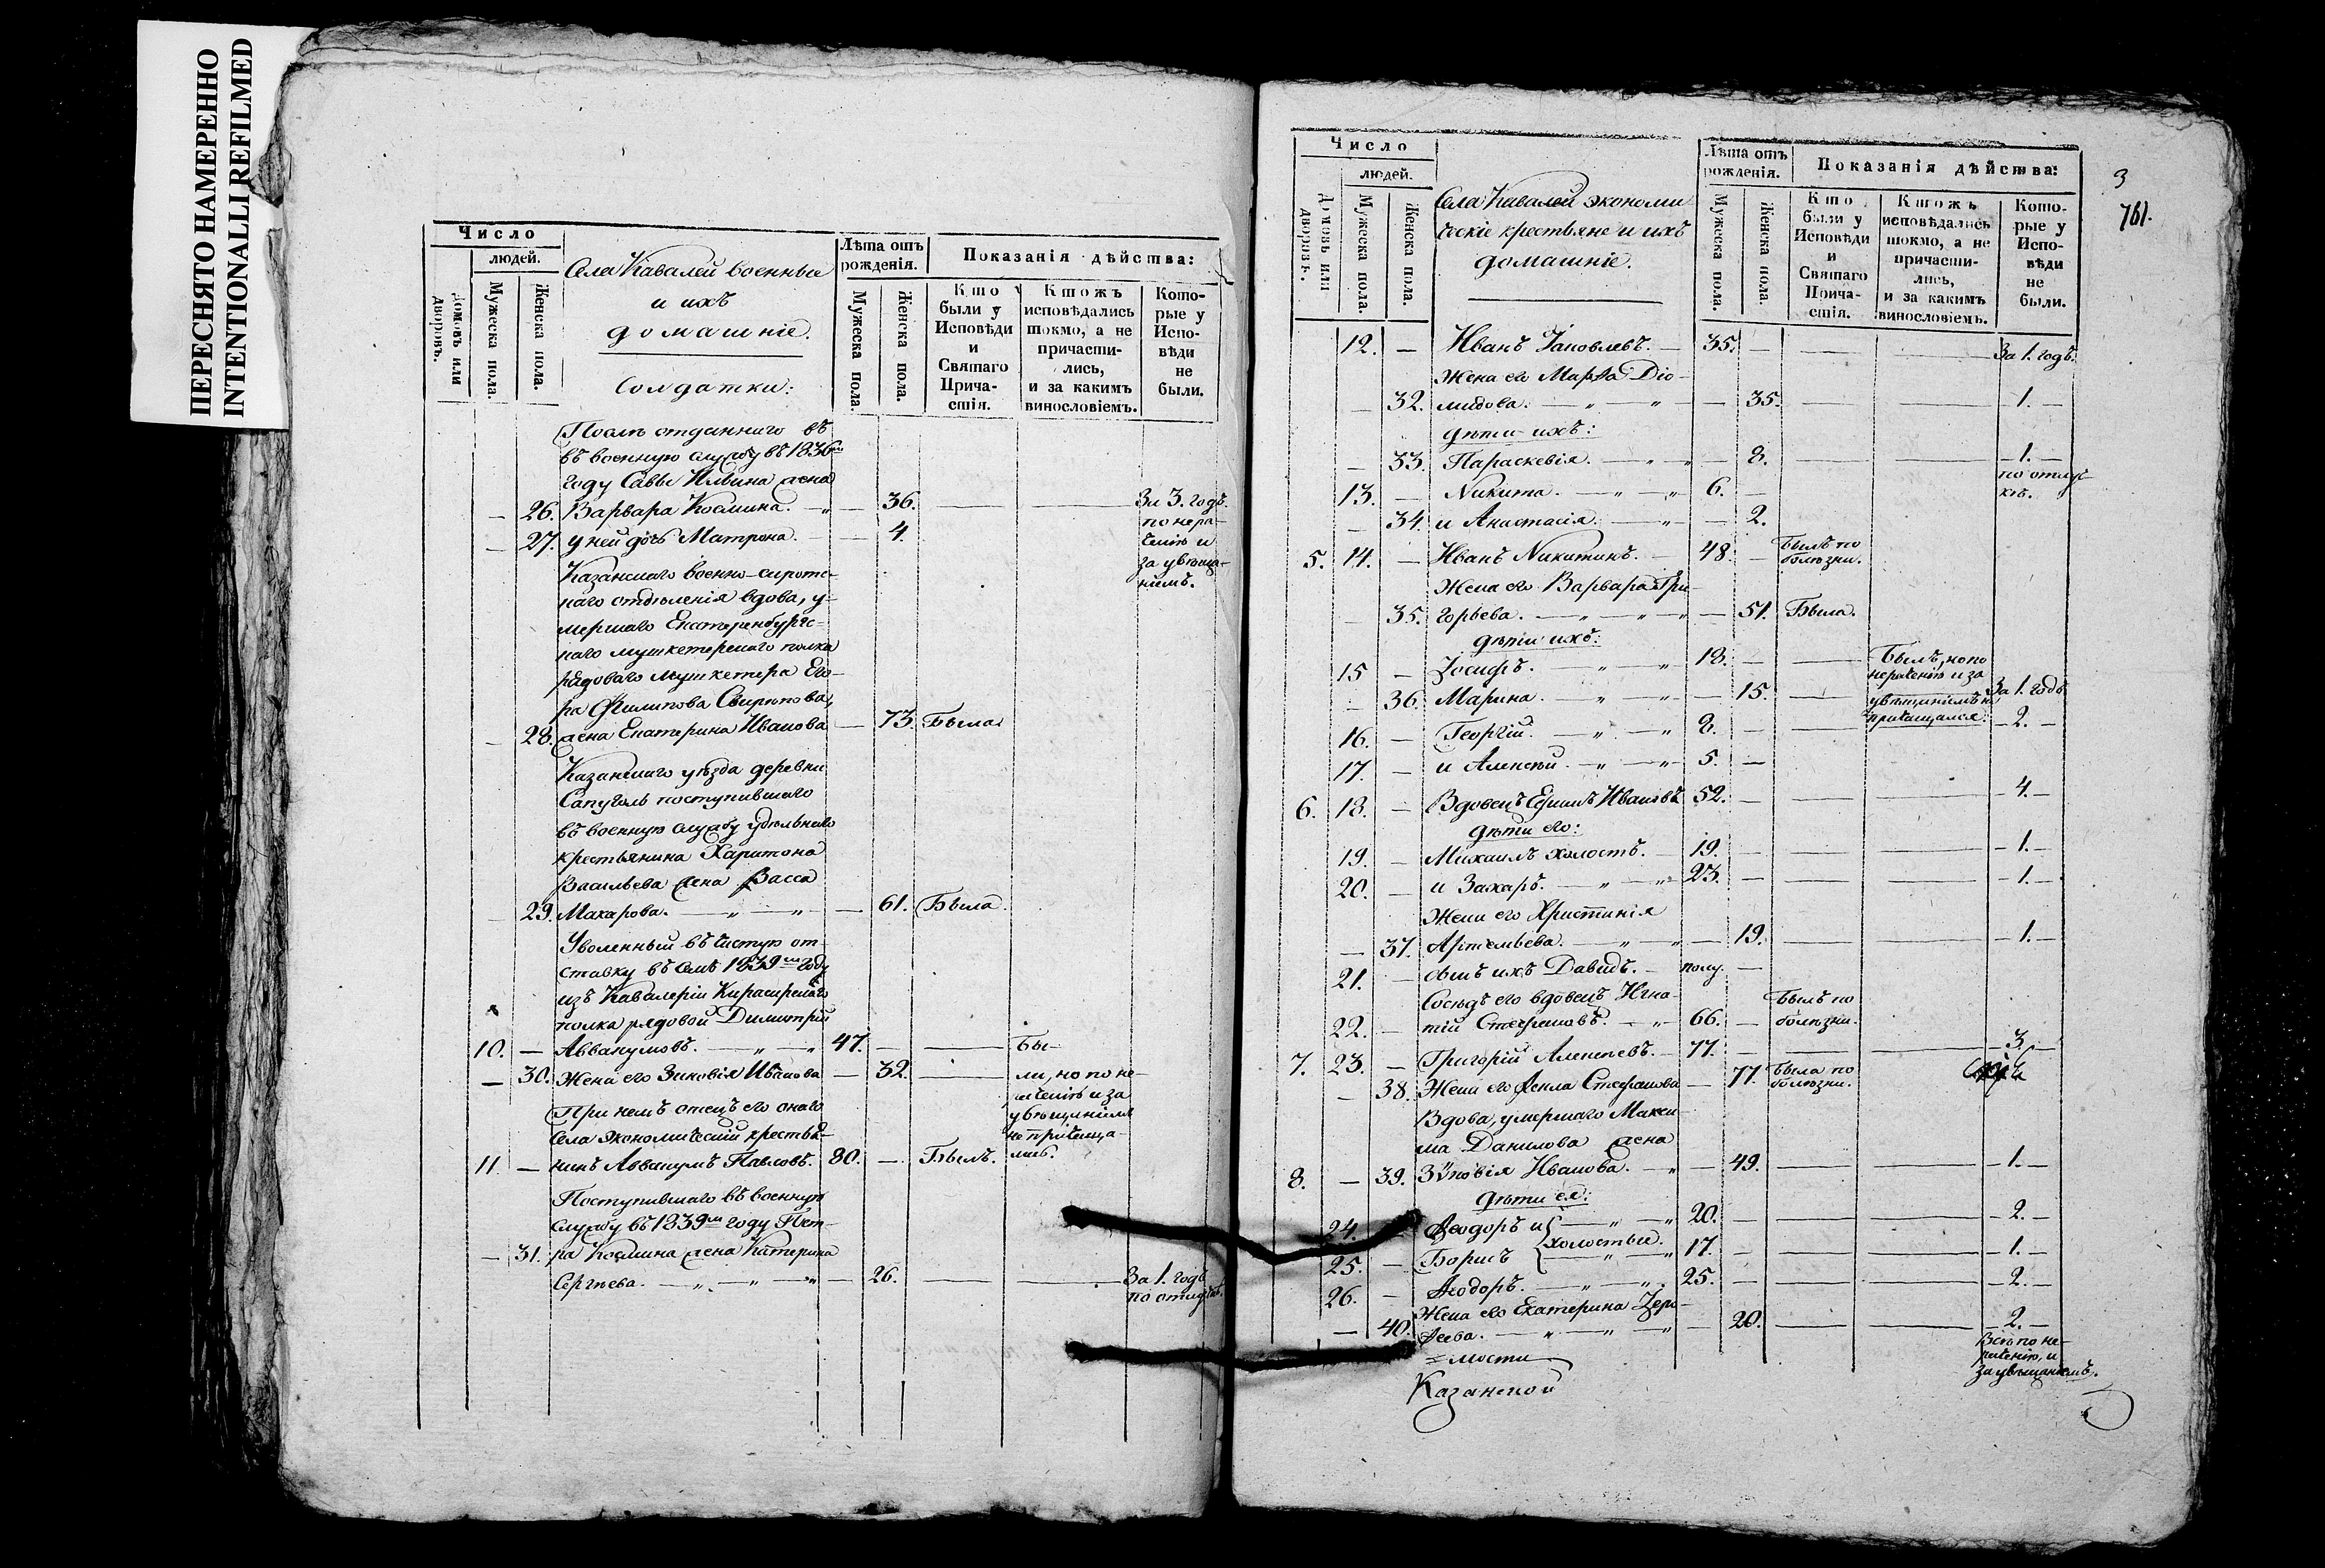 ПЕРЕСНЯТО НАМЕРЕННО
INTENTIONALLI REFILMED
Число
людей.
Домовъ или дворовъ.
Мужеска пола.
Женска пола.
Села Кавалей военные
и ихъ
домашніе.
Солдатки:
Лѣта отъ
рожденія.
Мужеска пола.
Женска пола.
Показанія дѣйства:
Кто
были у
Исповѣди
и
Святаго
Прича-
стія.
Ктожъ
исповѣдались
токмо, а не
причасти-
лись,
и за какимъ
винословіемъ.
Кото-
рые у
Испо-
вѣди
не
были.
отданнаго въ
въ военную службу въ 1836м
году Саввы Ильина жена
— 26. Варвара Косьмина. — 36. За 3. годъ.
— 27. у ней дочь Матрона. — 4. по нера-
ченію и
за увѣща-
ніемъ.
Казанскаго военно-сиротс-
каго отдѣленія вдова, у-
мершаго Екатеренбургс-
каго мушкетерскаго полка
рядоваго мушкетера Его-
ра Филипова Свирѣпова,
— 28. жена Екатерина Иванова — 73. Была
Казанскаго уѣзда деревни
поступившаго
въ военную службу удѣльнаго
крестьянина Харитона
Васильева жена Васса
— 29. Макарова. — 61. Была.
Уволенный въ чистую от-
ставку въ семъ 1839м году
изъ Кавалеріи Кирасирскаго
полка рядовой Димитрій
10. — Аввакумовъ. 47. — Бы-
— 30. Жена его Зиновія Иванова — 32. ли, но по не-
раченію и за
увѣщаніемъ
не прichаща-
лись.
При немъ отецъ его онаго
села экономическій крестья-
11 — нинъ Аввакумъ Павловъ. 80. — Былъ.
Поступившаго въ военную
службу въ 1839м году Пет-
— 31. ра Косьмина жена Катерина
Сергѣева. — 26. За 1. годъ
по отлучкѣ.
3
761.
Число
людей.
Домовъ или дворовъ.
Мужеска пола.
Женска пола.
Села Кавалей экономи
ческіе крестьяне и ихъ
домашніе.
Лѣта отъ
рожденія.
Мужеска пола.
Женска пола.
Показанія дѣйства:
Кто
были у
Исповѣди
и
Святаго
Прича-
стія.
Ктожъ
исповѣдались
токмо, а не
причасти-
лись,
и за какимъ
винословіемъ.
Кото-
рые у
Испо-
вѣди
не
были.
12. — Иванъ Іаковлевъ. 35. — За 1. годъ.
Жена его Марѳа Діо-
— 32. мидова. — 35. 1.
дѣти ихъ:
— 33. Параскевія. — 8. 1.
13. — Никита. 6. — по отлуч-
кѣ.
— 34. и Анастасія. — 2.
5. 14. — Иванъ Никитинъ. 48. — Былъ по
болѣзни.
Жена его Варвара Гри-
— 35. горьева. — 51. Была.
дѣти ихъ:
15 — Іосифъ. 18. — Былъ, но по
нераченію и за
увѣщаніемъ не
причащался.
— 36. Марина. — 15. За 1. годъ
16. — Георгій. 8. — 2.
17. — и Алексѣй. 5. —
6. 18. — Вдовецъ Ефимъ Ивановъ 52. — 4.
дѣти его:
19. — Михаилъ холостъ. 19. — 1.
20. — и Захаръ. 23. — 1.
Жена его Христинія
— 37. Артемьева. — 19. 1.
21. — сынъ ихъ Давидъ. полу. —
Сосѣдъ его вдовецъ Игна-
22. — тій Стефановъ. 66. — Былъ по
болѣзни.
7. 23. — Григорій Алексѣевъ. 77. — 3.
— 38. Жена его Ѳекла Стефанова — 77. Была по
болѣзни.
Вдова, умершаго Макси
ма Данилова жена
8. — 39. Зиновія Иванова. — 49. 1.
дѣти ея:
24. — Ѳеодоръ и 20. — 2.
холостые.
25. — Борисъ 17. — 1.
26. — Ѳеодоръ. 25. — 2.
Жена его Екатерина Іеро-
— 40. ѳеева. — 20. 2.
Всѣ по не-
раченію, и
за увѣщаніемъ.
=мости
Казанской